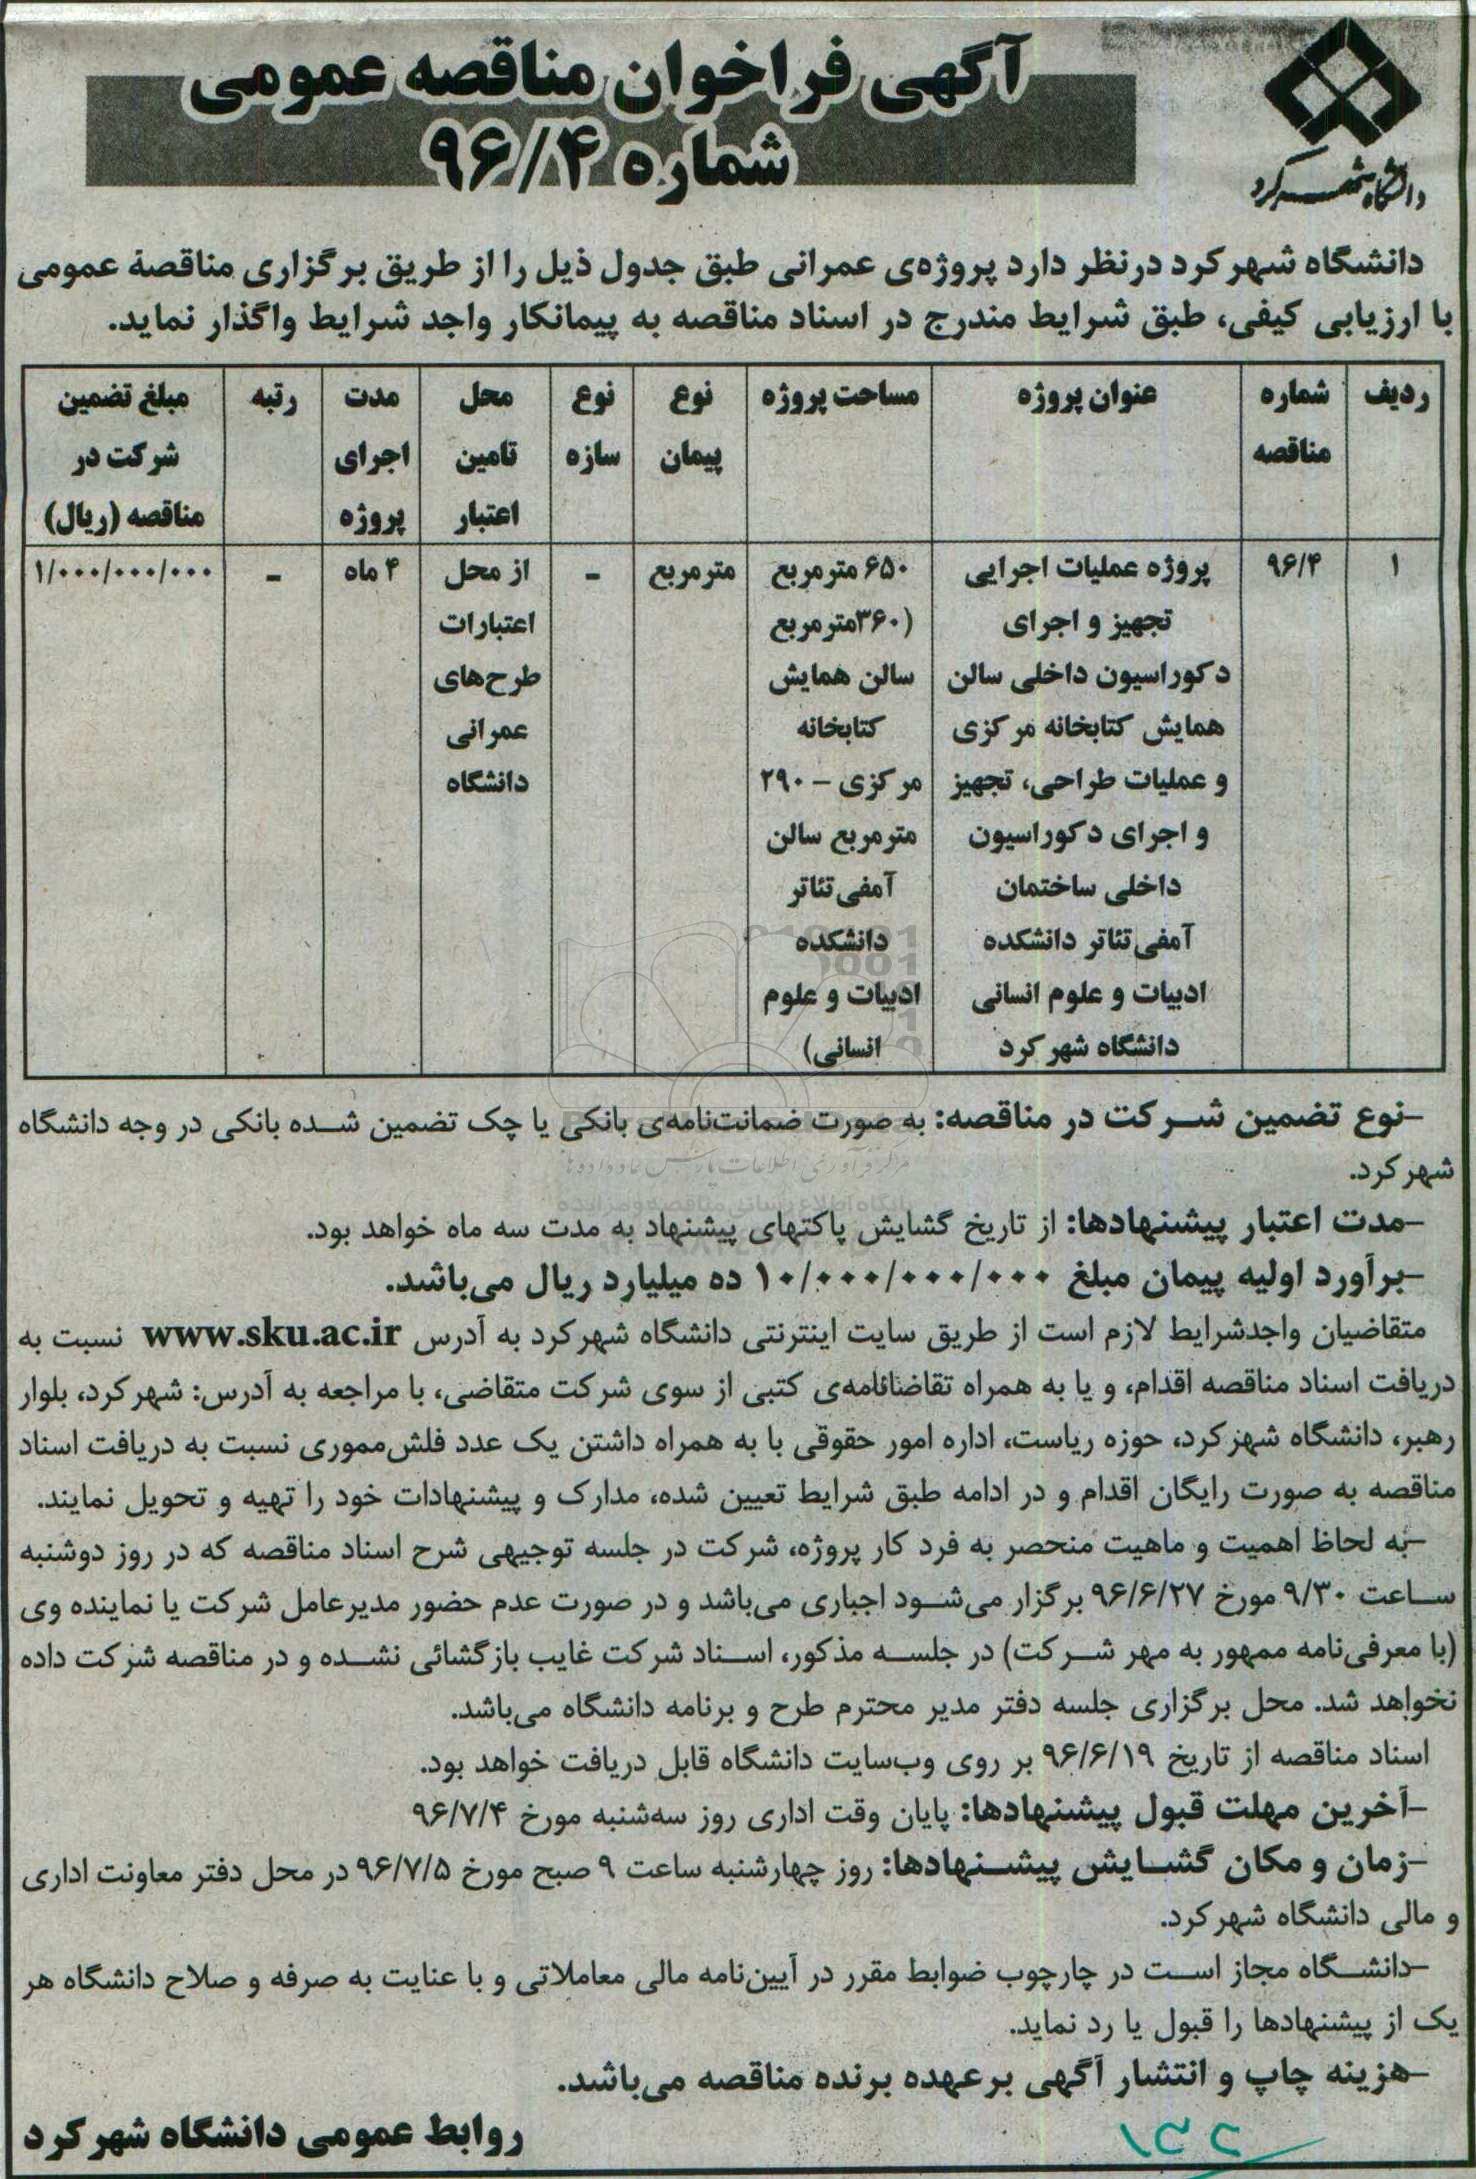 دانشگاه شهرکرد
آگهی فراخوان مناقصه عمومی
شماره ۹۶/۴
دانشگاه شهرکرد درنظر دارد پروژه‌ی عمرانی طبق جدول ذیل را از طریق برگزاری مناقصهٔ عمومی
با ارزیابی کیفی، طبق شرایط مندرج در اسناد مناقصه به پیمانکار واجد شرایط واگذار نماید.
ردیف
شماره
مناقصه
عنوان پروژه
مساحت پروژه
نوع
پیمان
نوع
سازه
محل
تامین
اعتبار
مدت
اجرای
پروژه
رتبه
مبلغ تضمین
شرکت در
مناقصه (ریال)
۱
۹۶/۴
پروژه عملیات اجرایی
تجهیز و اجرای
دکوراسیون داخلی سالن
همایش کتابخانه مرکزی
و عملیات طراحی، تجهیز
و اجرای دکوراسیون
داخلی ساختمان
آمفی‌تئاتر دانشکده
ادبیات و علوم انسانی
دانشگاه شهرکرد
۶۵۰ مترمربع
(۳۶۰مترمربع
سالن همایش
کتابخانه
مرکزی – ۲۹۰
مترمربع سالن
آمفی‌تئاتر
دانشکده
ادبیات و علوم
انسانی)
مترمربع
-
از محل
اعتبارات
طرح‌های
عمرانی
دانشگاه
۴ ماه
-
۱/۰۰۰/۰۰۰/۰۰۰
–نوع تضمین شرکت در مناقصه: به صورت ضمانت‌نامه‌ی بانکی یا چک تضمین شده بانکی در وجه دانشگاه
شهرکرد.
–مدت اعتبار پیشنهادها: از تاریخ گشایش پاکتهای پیشنهاد به مدت سه ماه خواهد بود.
–برآورد اولیه پیمان مبلغ ۱۰/۰۰۰/۰۰۰/۰۰۰ ده میلیارد ریال می‌باشد.
متقاضیان واجدشرایط لازم است از طریق سایت اینترنتی دانشگاه شهرکرد به آدرس www.sku.ac.ir نسبت به
دریافت اسناد مناقصه اقدام، و یا به همراه تقاضانامه‌ی کتبی از سوی شرکت متقاضی، با مراجعه به آدرس: شهرکرد، بلوار
رهبر، دانشگاه شهرکرد، حوزه ریاست، اداره امور حقوقی با به همراه داشتن یک عدد فلش‌مموری نسبت به دریافت اسناد
مناقصه به صورت رایگان اقدام و در ادامه طبق شرایط تعیین شده، مدارک و پیشنهادات خود را تهیه و تحویل نمایند.
–به لحاظ اهمیت و ماهیت منحصر به فرد کار پروژه، شرکت در جلسه توجیهی شرح اسناد مناقصه که در روز دوشنبه
ساعت ۹/۳۰ مورخ ۹۶/۶/۲۷ برگزار می‌شود اجباری می‌باشد و در صورت عدم حضور مدیرعامل شرکت یا نماینده وی
(با معرفی‌نامه ممهور به مهر شرکت) در جلسه مذکور، اسناد شرکت غایب بازگشائی نشده و در مناقصه شرکت داده
نخواهد شد. محل برگزاری جلسه دفتر مدیر محترم طرح و برنامه دانشگاه می‌باشد.
اسناد مناقصه از تاریخ ۹۶/۶/۱۹ بر روی وب‌سایت دانشگاه قابل دریافت خواهد بود.
–آخرین مهلت قبول پیشنهادها: پایان وقت اداری روز سه‌شنبه مورخ ۹۶/۷/۴
–زمان و مکان گشایش پیشنهادها: روز چهارشنبه ساعت ۹ صبح مورخ ۹۶/۷/۵ در محل دفتر معاونت اداری
و مالی دانشگاه شهرکرد.
–دانشگاه مجاز است در چارچوب ضوابط مقرر در آیین‌نامه مالی معاملاتی و با عنایت به صرفه و صلاح دانشگاه هر
یک از پیشنهادها را قبول یا رد نماید.
–هزینه چاپ و انتشار آگهی برعهده برنده مناقصه می‌باشد.
روابط عمومی دانشگاه شهرکرد